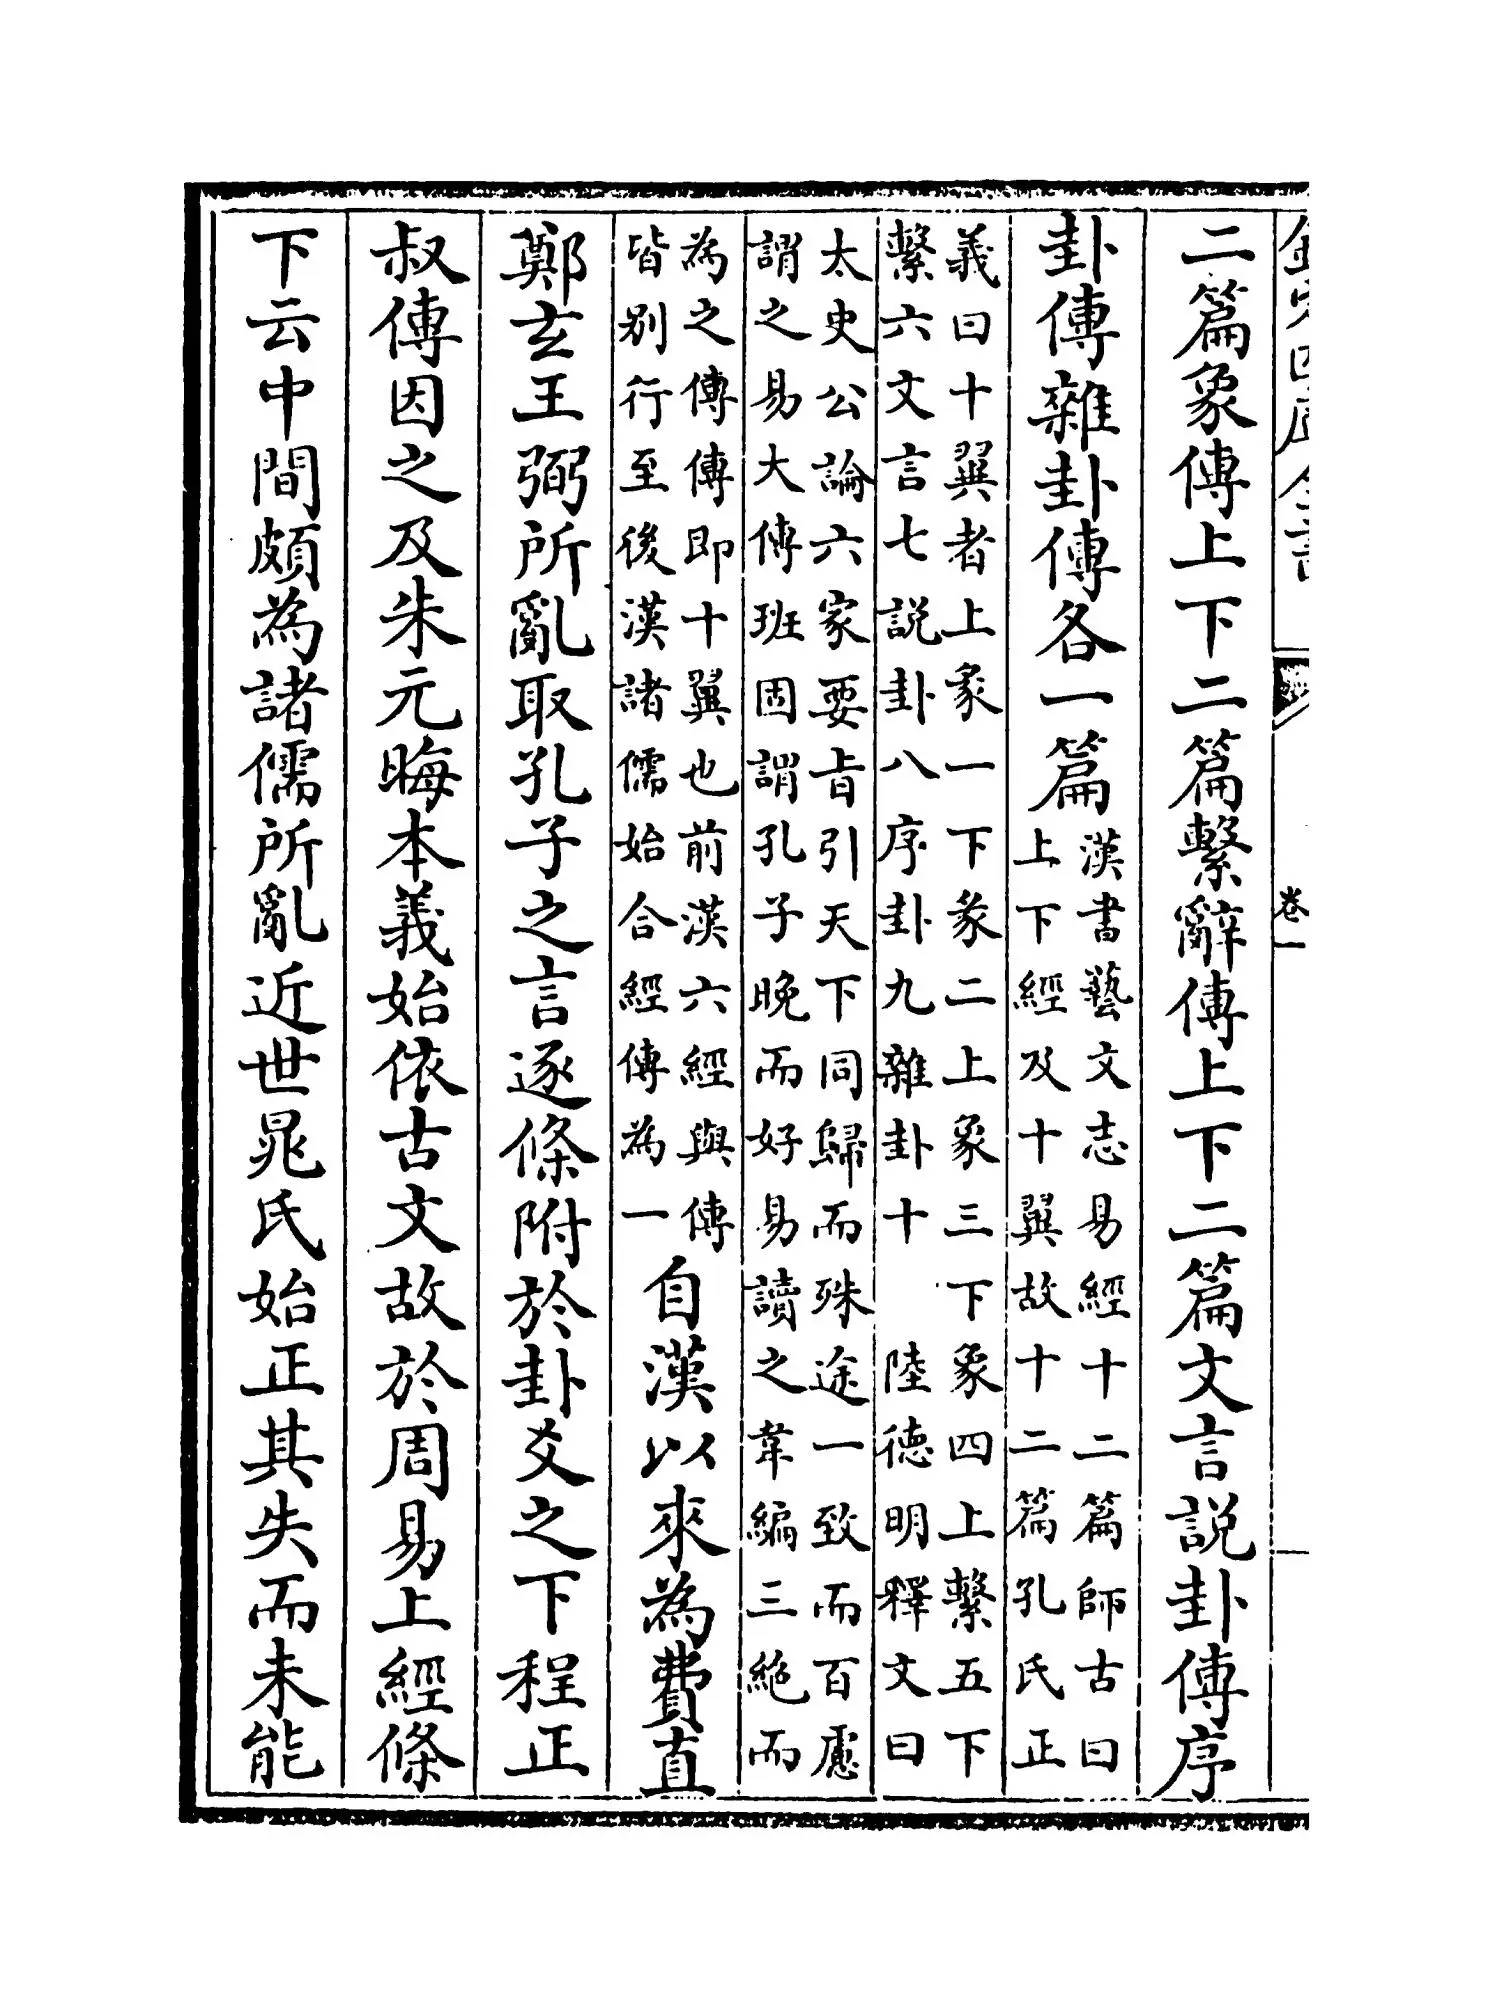 欽定四庫全書
卷一
二篇象傳上下二篇繫辭傳上下二篇文言說卦傳序
卦傳雜卦傳各一篇
漢書藝文志易經十二篇師古曰
上下經及十翼故十二篇孔氏正
義曰十翼者上彖一下彖二上象三下象四上繫五下
繫六文言七說卦八序卦九雜卦十 陸德明釋文曰
太史公論六家要㫖引天下同歸而殊途一致而百慮
謂之易大傳班固謂孔子晚而好易讀之韋編三絶而
為之傳傳即十翼也前漢六經與傳
皆别行至後漢諸儒始合經傳為一
自漢以來為費直
鄭玄王弼所亂取孔子之言逐條附於卦爻之下程正
叔傳因之及朱元晦本義始依古文故於周易上經條
下云中間頗為諸儒所亂近世晁氏始正其失而未能